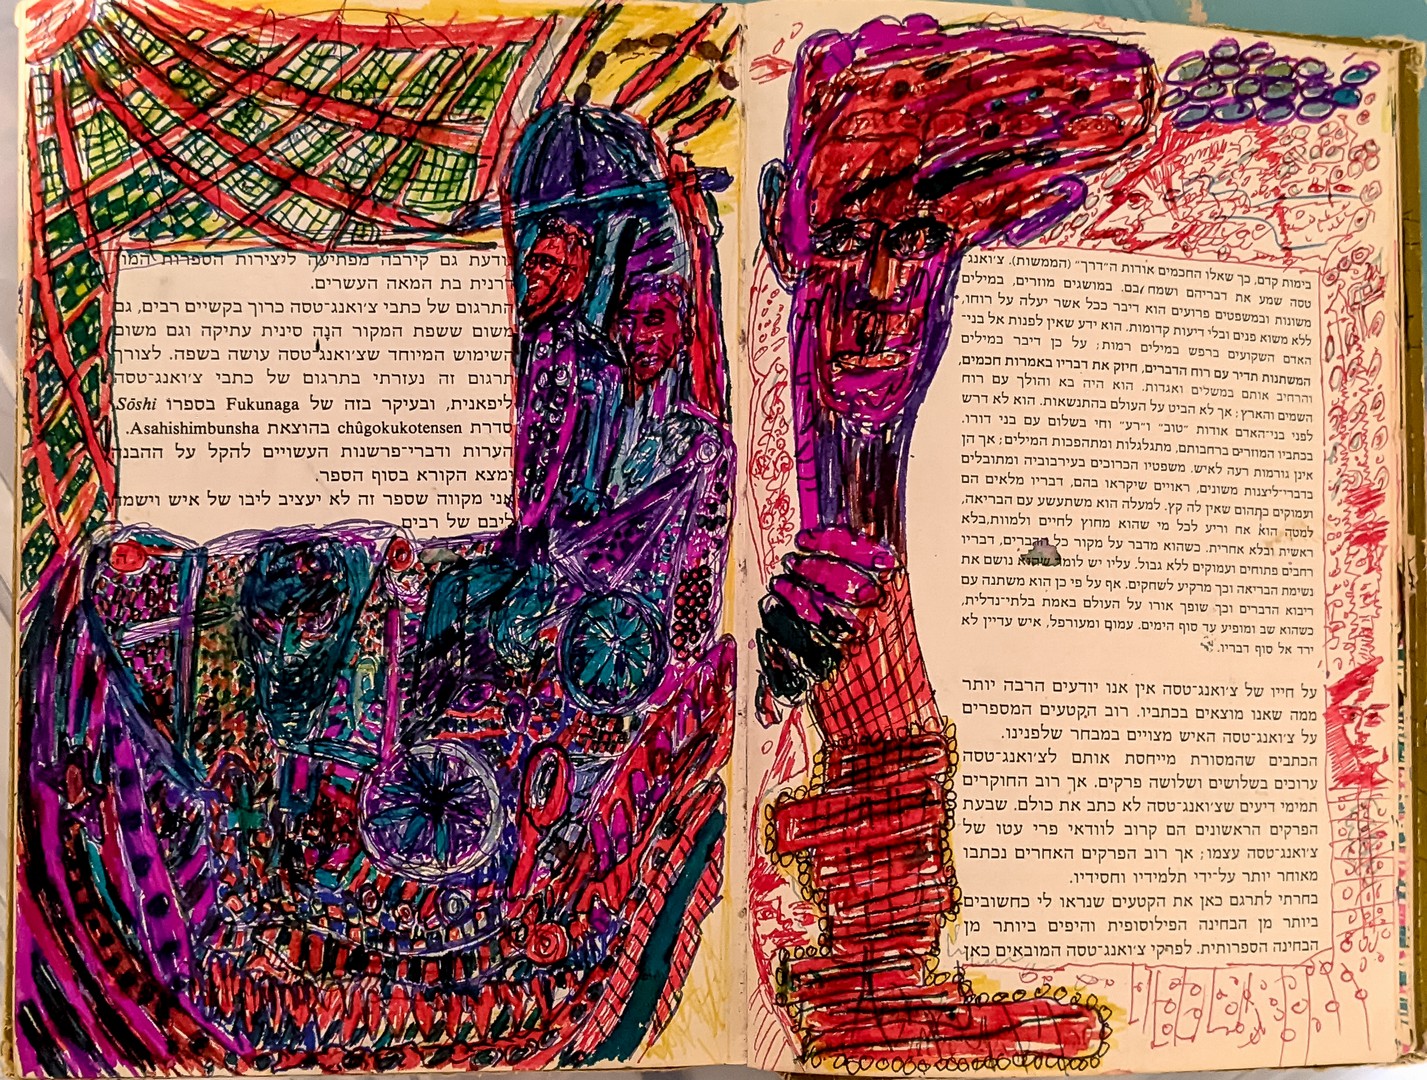 בימות קדם, כך שאלו החכמים אודות ה״דרך״ (הממשות). צ׳ואנג־
טסה שמע את דבריהם ושמח בם. במושגים מוזרים, במילים
משונות ובמשפטים פרועים הוא דיבר ככל אשר יעלה על רוחו,
ללא משוא פנים ובלי דיעות קדומות. הוא ידע שאין לפנות אל בני־
האדם השקועים ברפש במילים רמות; על כן דיבר במילים
המשתנות תדיר עם רוח הדברים, חיזק את דבריו באמרות חכמים,
והרחיב אותם במשלים ואגדות. הוא היה בא והולך עם רוח
השמים והארץ; אך לא הביט על העולם בהתנשאות. הוא לא דרש
לפני בני־האדם אודות ״טוב״ ו״רע״ וחי בשלום עם בני דורו.
בכתביו המוזרים ברחבותם, מתגלגלות ומתהפכות המילים; אך הן
אינן גורמות רעה לאיש. משפטיו הכרוכים בעירבוביה ומתובלים
בדברי־ליצנות משונים, ראויים שיקראו בהם, דבריו מלאים הם
ועמוקים כתהום שאין לה קץ. למעלה הוא משתעשע עם הבריאה,
למטה הוא אח וריע לכל מי שהוא מחוץ לחיים ולמוות, בלא
ראשית ובלא אחרית. כשהוא מדבר על מקור כל הדברים, דבריו
רחבים פתוחים ועמוקים ללא גבול. עליו יש לומר שהוא נושם את
נשימת הבריאה וכך מרקיע לשחקים. אף על פי כן הוא משתנה עם
ריבוא הדברים וכך שופך אורו על העולם באמת בלתי־נדלית,
כשהוא שב ומופיע עד סוף הימים. עמום ומעורפל, איש עדיין לא
ירד אל סוף דבריו.
על חייו של צ׳ואנג־טסה אין אנו יודעים הרבה יותר
ממה שאנו מוצאים בכתביו. רוב הקטעים המספרים
על צ׳ואנג־טסה האיש מצויים במבחר שלפנינו.
הכתבים שהמסורת מייחסת אותם לצ׳ואנג־טסה
ערוכים בשלושים ושלושה פרקים. אך רוב החוקרים
תמימי דיעים שצ׳ואנג־טסה לא כתב את כולם. שבעת
הפרקים הראשונים הם קרוב לוודאי פרי עטו של
צ׳ואנג־טסה עצמו; אך רוב הפרקים האחרים נכתבו
מאוחר יותר על־ידי תלמידיו וחסידיו.
בחרתי לתרגם כאן את הקטעים שנראו לי כחשובים
ביותר מן הבחינה הפילוסופית והיפים ביותר מן
הבחינה הספרותית. לפרקי צ׳ואנג־טסה המובאים כאן
נודעת גם קירבה מפתיעה ליצירות הספרות המו־
דרנית בת המאה העשרים.
התרגום של כתבי צ׳ואנג־טסה כרוך בקשיים רבים, גם
משום ששפת המקור הנה סינית עתיקה וגם משום
השימוש המיוחד שצ׳ואנג־טסה עושה בשפה. לצורך
תרגום זה נעזרתי בתרגום של כתבי צ׳ואנג־טסה
ליפאנית, ובעיקר בזה של Fukunaga בספרו Sōshi
סדרת chûgokukotensen בהוצאת Asahishimbunsha.
הערות ודברי־פרשנות העשויים להקל על ההבנה
ימצא הקורא בסוף הספר.
אני מקווה שספר זה לא יעציב ליבו של איש וישמח
ליבם של רבים